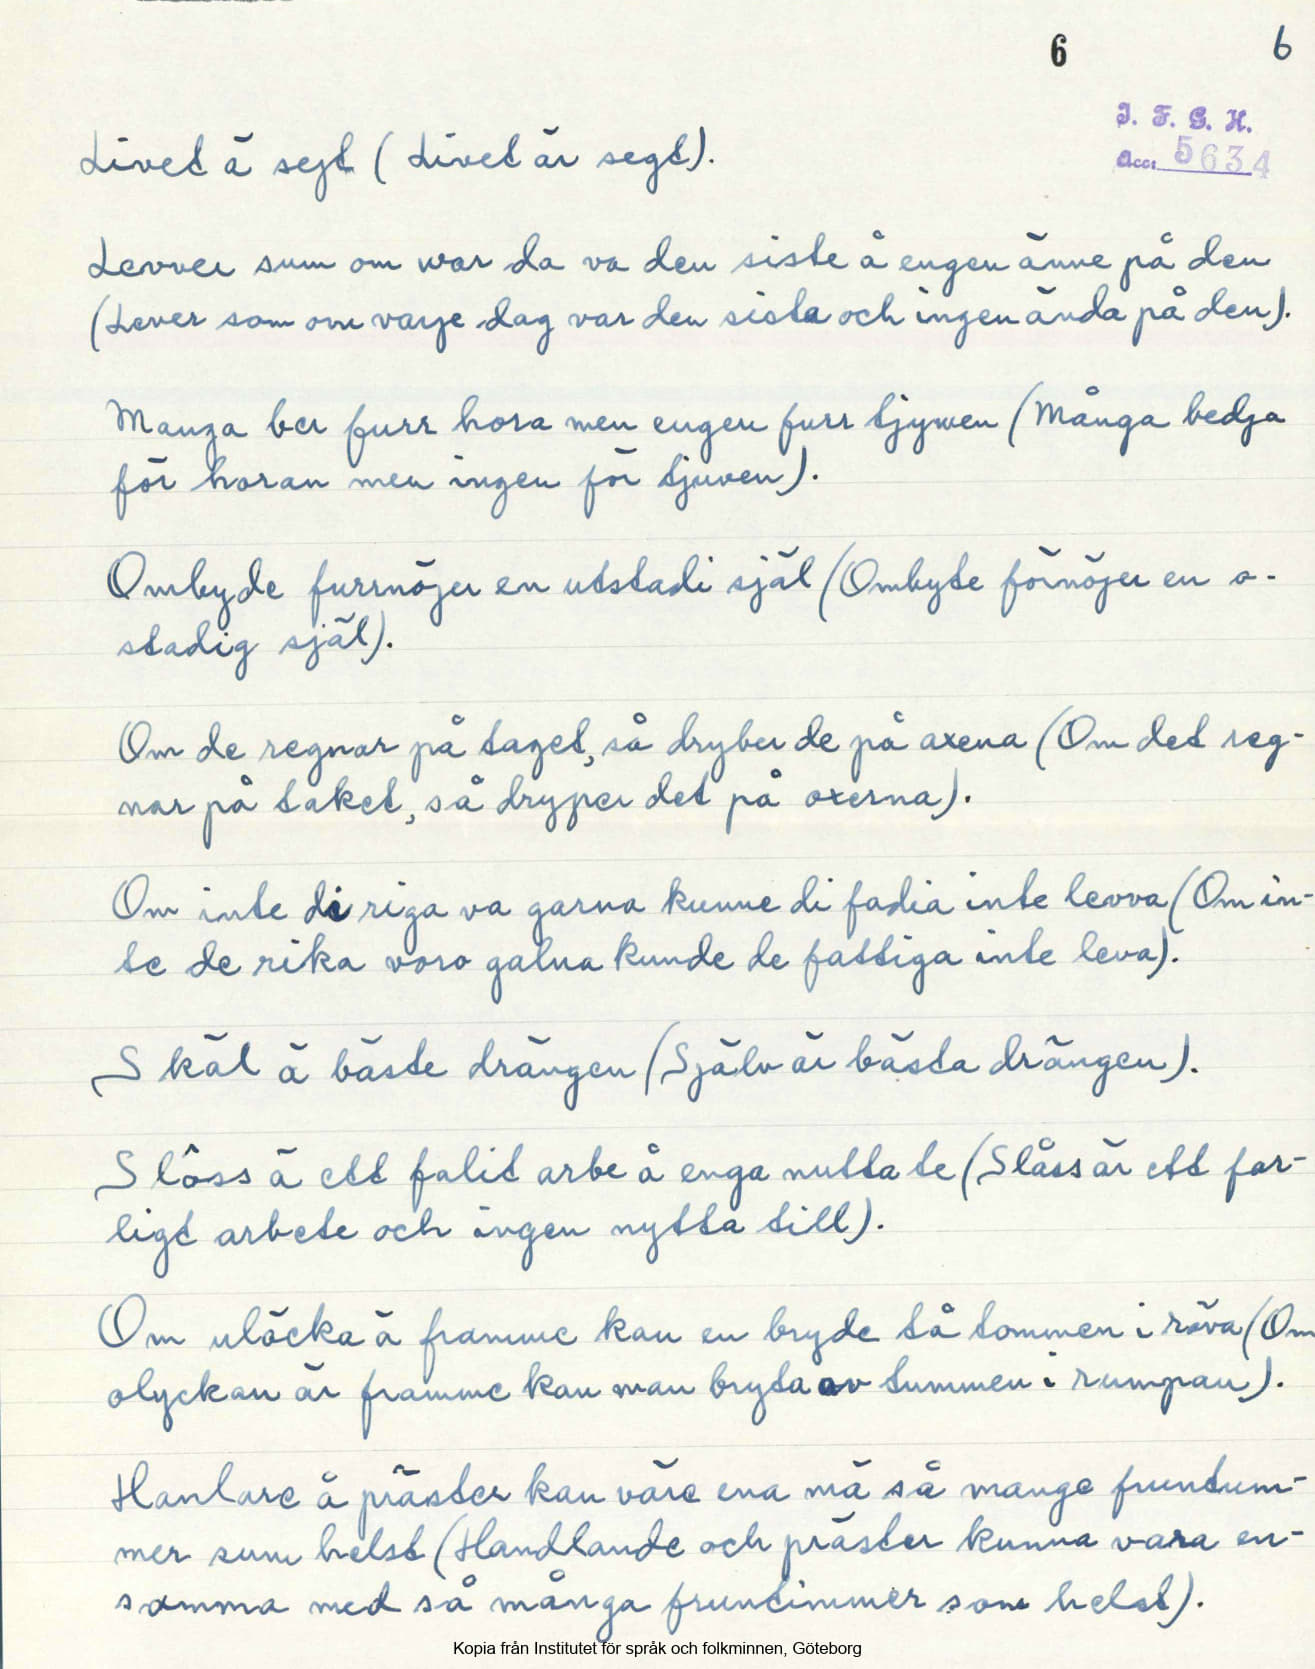 6 6
I. F. G. H.
Acc. 5634
Livet ä sejt (Livet är segt).
Levver sum om war da va den siste å engen änne på den
(Lever som om varje dag var den sista och ingen ända på den).
Manga ber furr hora men engen furr tjywen (Många bedja
för horan men ingen för tjuven).
Ombyde furrnöjer en utstadi själ (Ombyte förnöjer en o-
stadig själ).
Om de regnar på taget, så dryber de på axena (Om det reg-
nar på taket, så dryper det på oxerna).
Om inte di riga va garna kunne di fadia inte levva (Om in-
te de rika voro galna kunde de fattiga inte leva).
Skäl ä bäste drängen (Själv är bästa drängen).
Slôss ä ett falit arbe å enga nutta te (Slåss är ett far-
ligt arbete och ingen nytta till).
Om uläcka ä framme kan en bryde tå tommen i röva (Om
olyckan är framme kan man bryta av tummen i rumpan).
Hanlare å präster kan väre ena mä så mange fruntum-
mer sum helst (Handlande och präster kunna vara en-
samma med så många fruntimmer som helst).
Kopia från Institutet för språk och folkminnen, Göteborg